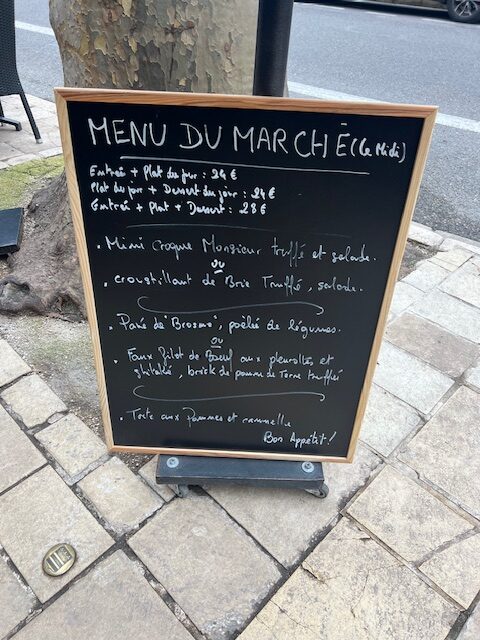 MENU DU MARCHÉ (Le Midi)
Entrée + Plat du jour : 24 €
Plat du jour + Dessert du jour : 24 €
Entrée + Plat + Dessert : 28 €
. Mini Croque Monsieur truffé et salade.
ou
. croustillant de Brie Truffé, salade.
. Pavé de "Brosme", poêlée de légumes.
ou
. Faux filet de Boeuf aux pleurottes et
shitaké, brick de pomme de Terre truffée
. Tarte aux Pommes et cannelle
Bon Appétit !